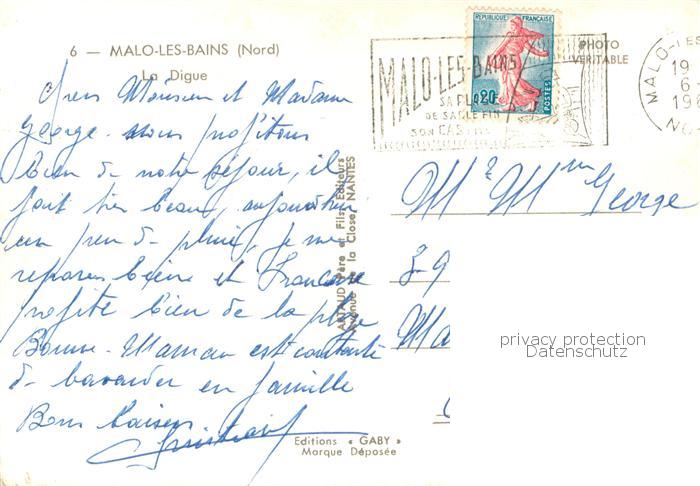 6 — MALO-LES-BAINS (Nord)
La Digue
Chers Monsieur et Madame
George. nous profitons
bien de notre séjour, il
fait très beau, aujourd'hui
un peu de pluie, je me
repose bien et Francoise
profite bien de la plage
Bonne-Maman est contente
de bavarder en famille
Bons baisers
Editions « GABY »
Marque Déposée
ARTAUD Père et Fils, Editeurs
Avenue de la Close, NANTES
REPUBLIQUE FRANÇAISE
0,20
POSTES
MALO-LES-BAINS
SA PLAGE
DE SABLE FIN
SON CASINO
PHOTO
VERITABLE
MALO-LES
19
6-
19
NO
Mr Mme George
59
Ma
privacy protection
Datenschutz